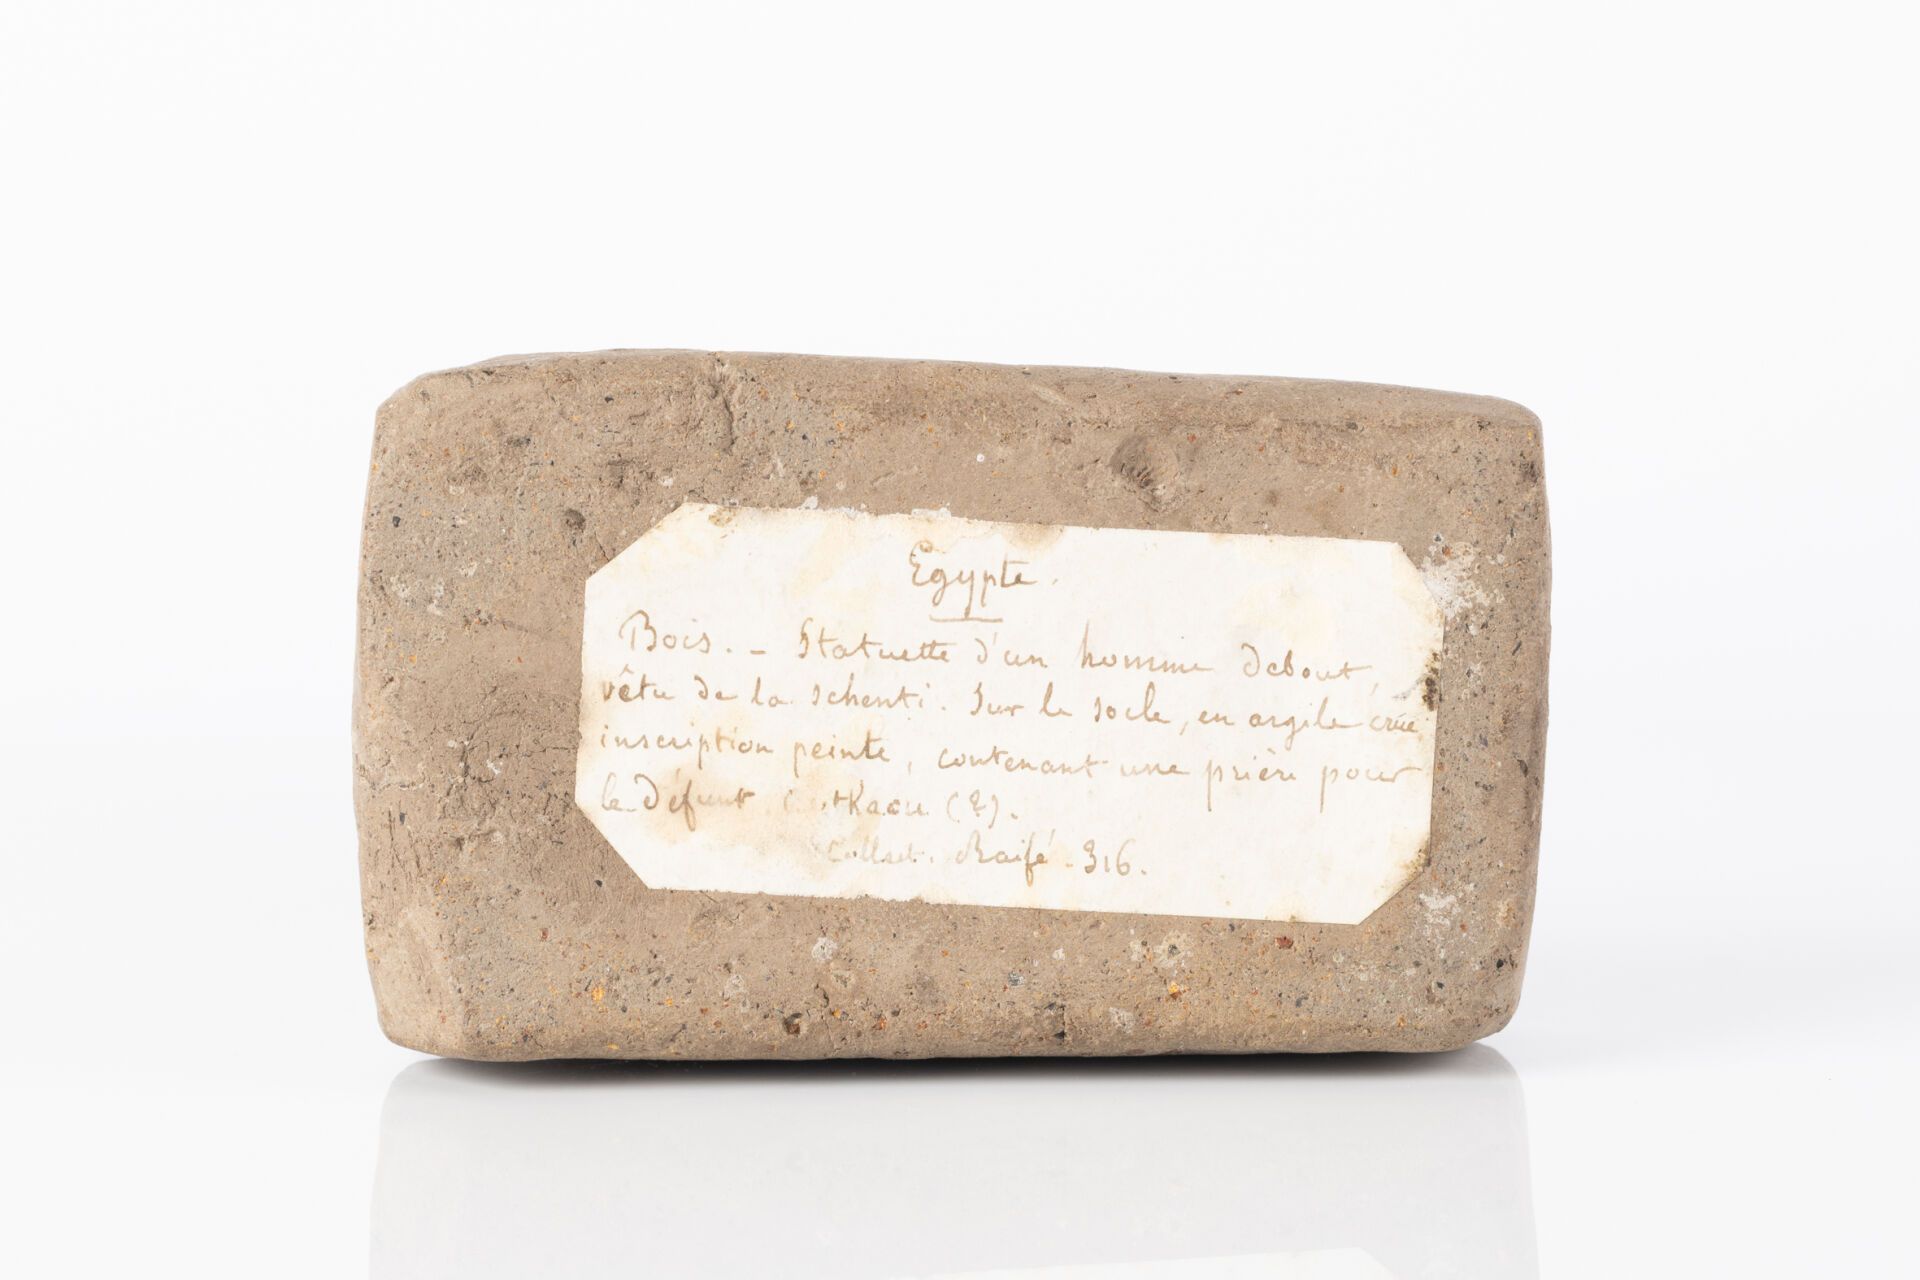 Egypte.
Bois. - Statuette d'un homme debout,
vêtu de la schenti. Sur le socle, en argile crue
inscription peinte, contenant une prière pour
le défunt (?).
Collect. Raifé. 316.